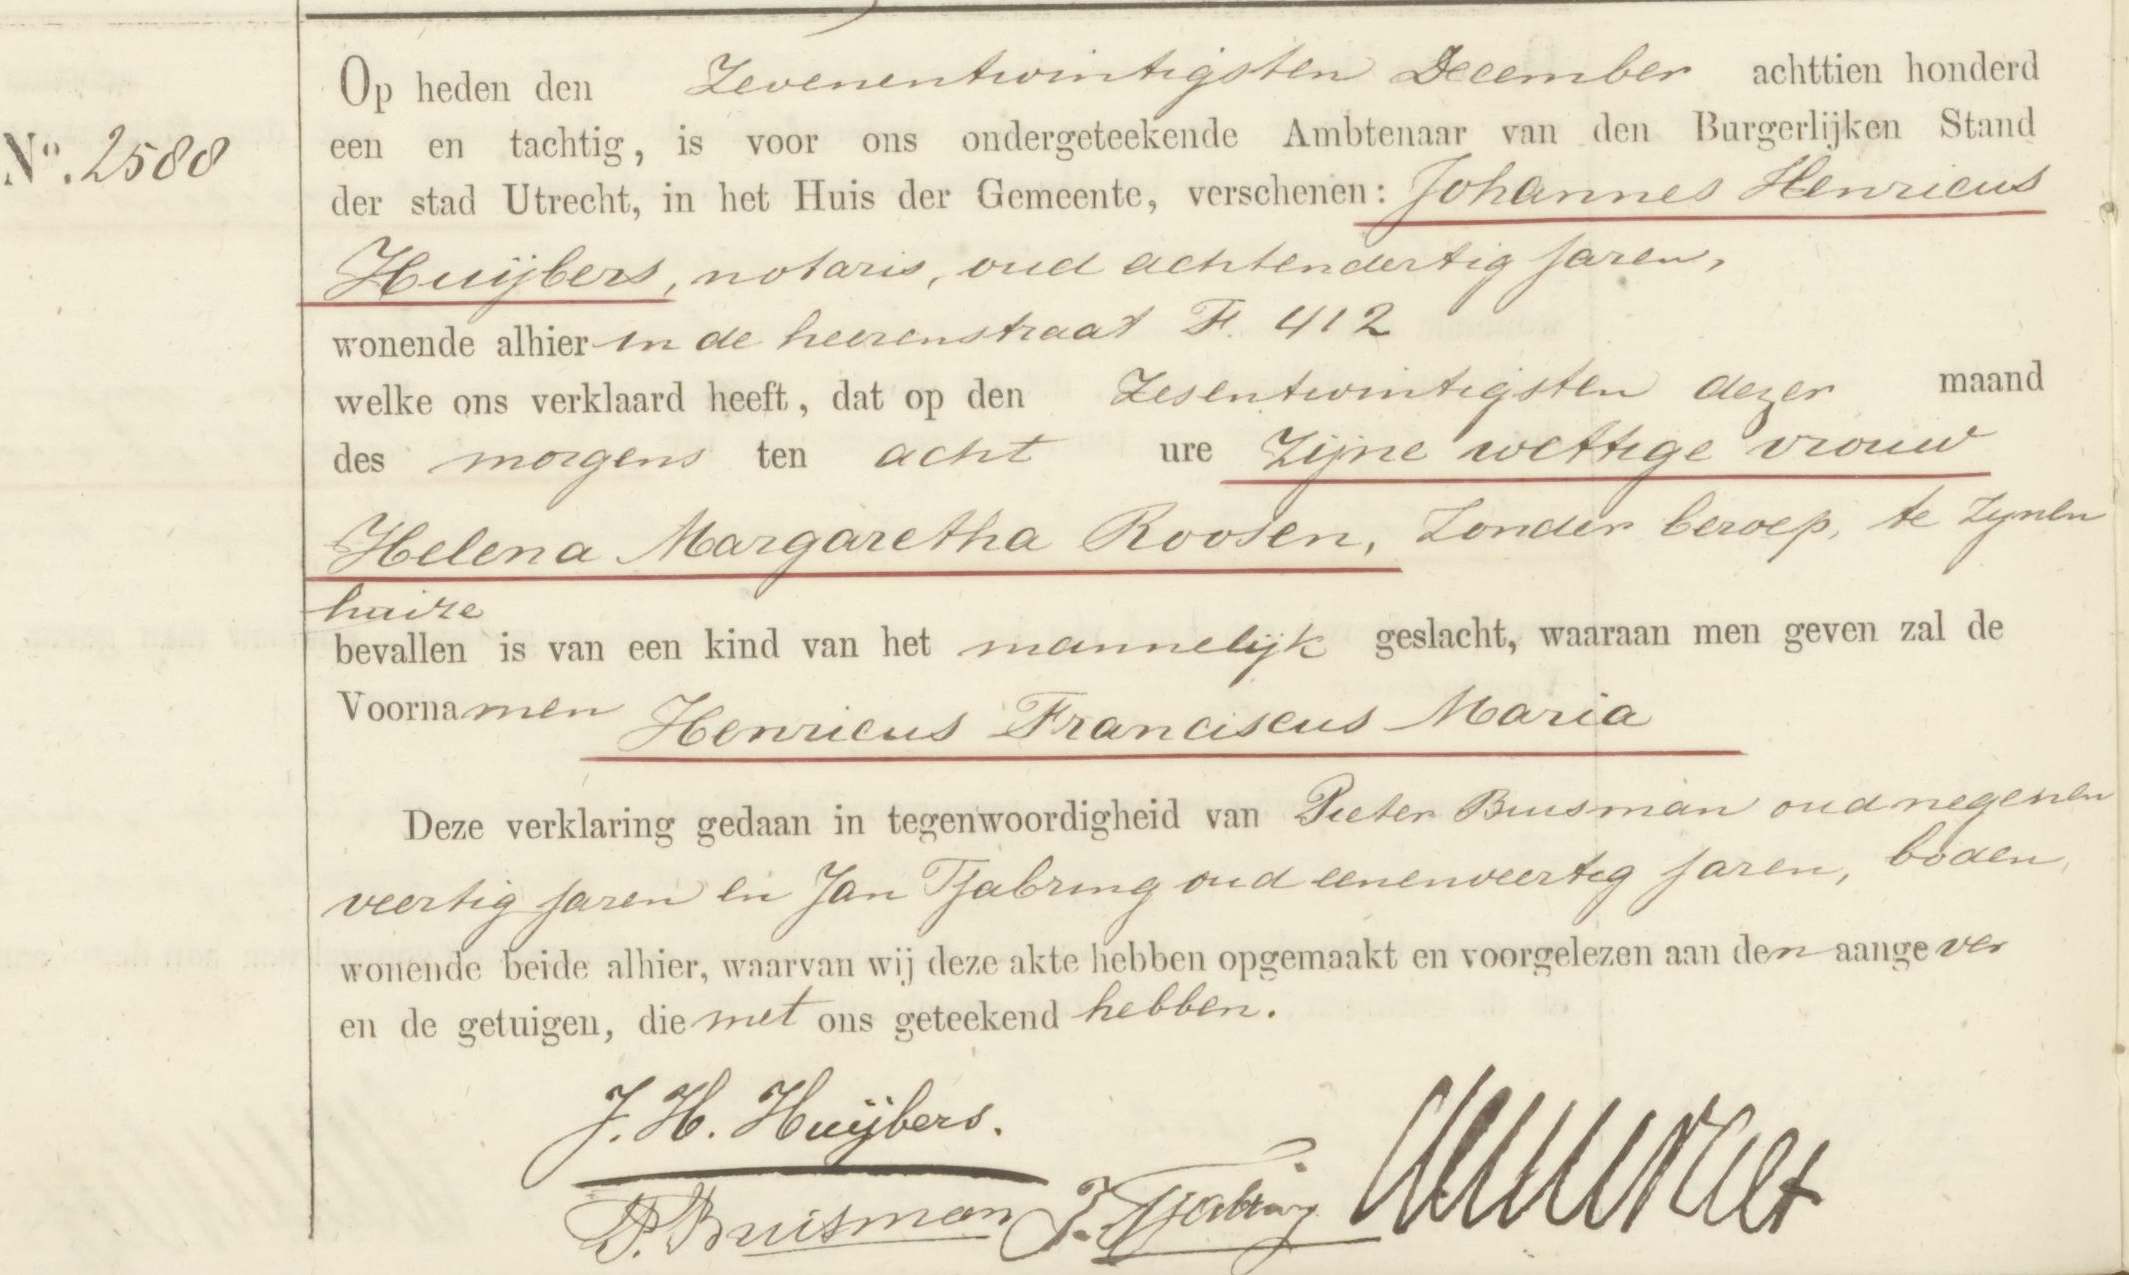 Op heden den Zevenentwintigsten December achttien honderd
een en tachtig, is voor ons ondergeteekende Ambtenaar van den Burgerlijken Stand
Nº. 2588
der stad Utrecht, in het Huis der Gemeente, verschenen: Johannes Henricus
Huijbers, notaris, oud achtendertig jaren,
wonende alhier in de heerenstraat F. 412
welke ons verklaard heeft, dat op den Zesentwintigsten dezer maand
des morgens ten acht ure Zijne wettige vrouw
Helena Margaretha Roosen, Zonder beroep, te Zijnen
huize
bevallen is van een kind van het mannelijk geslacht, waaraan men geven zal de
Voornamen Henricus Franciscus Maria
Deze verklaring gedaan in tegenwoordigheid van Pieter Buisman oud negenen
veertig jaren en Jan Tjabring oud eenenveertig jaren, boden,
wonende beide alhier, waarvan wij deze akte hebben opgemaakt en voorgelezen aan den aangever
en de getuigen, die met ons geteekend hebben.
J. H. Huijbers.
P. Buisman J. Tjabring